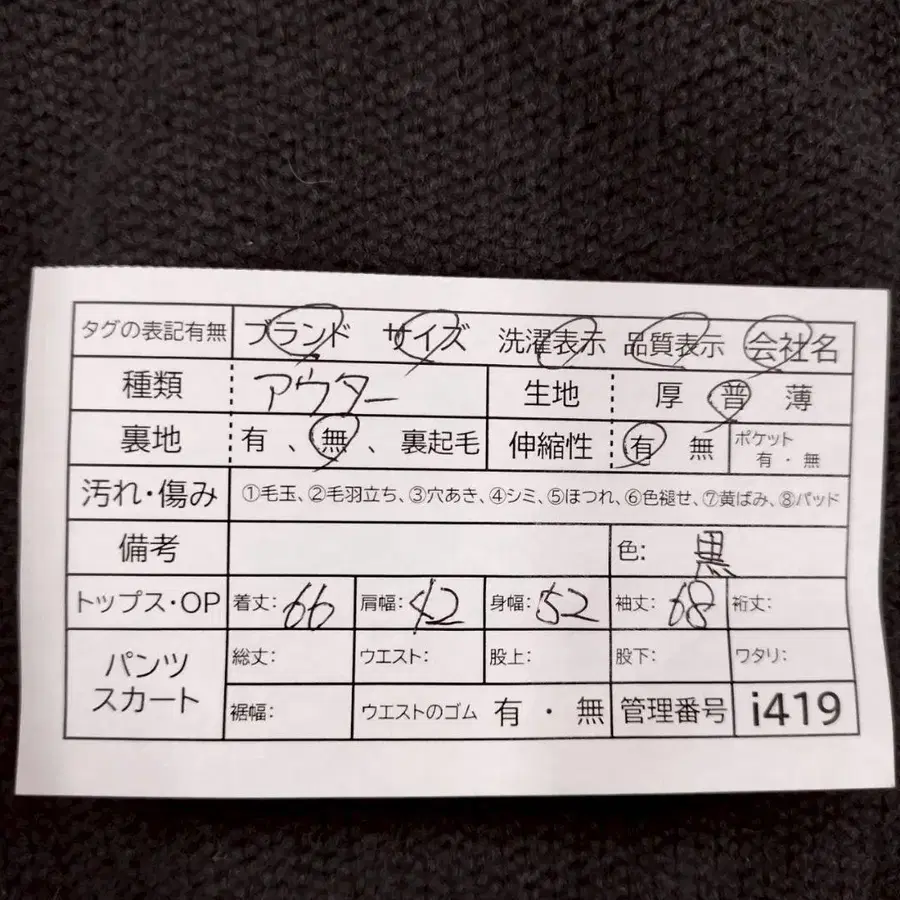 タグの表記有無 ブランド サイズ 洗濯表示 品質表示 会社名
種類 アウター 生地 厚 普 薄
裏地 有 、無、裏起毛 伸縮性 有 無 ポケット 有・無
汚れ・傷み ①毛玉、②毛羽立ち、③穴あき、④シミ、⑤ほつれ、⑥色褪せ、⑦黄ばみ、⑧パッド
備考 色: 黒
トップス・OP 着丈: 66 肩幅: 42 身幅: 52 袖丈: 68 裄丈:
パンツ スカート 総丈: ウエスト: 股上: 股下: ワタリ:
裾幅: ウエストのゴム 有 ・ 無 管理番号 i419